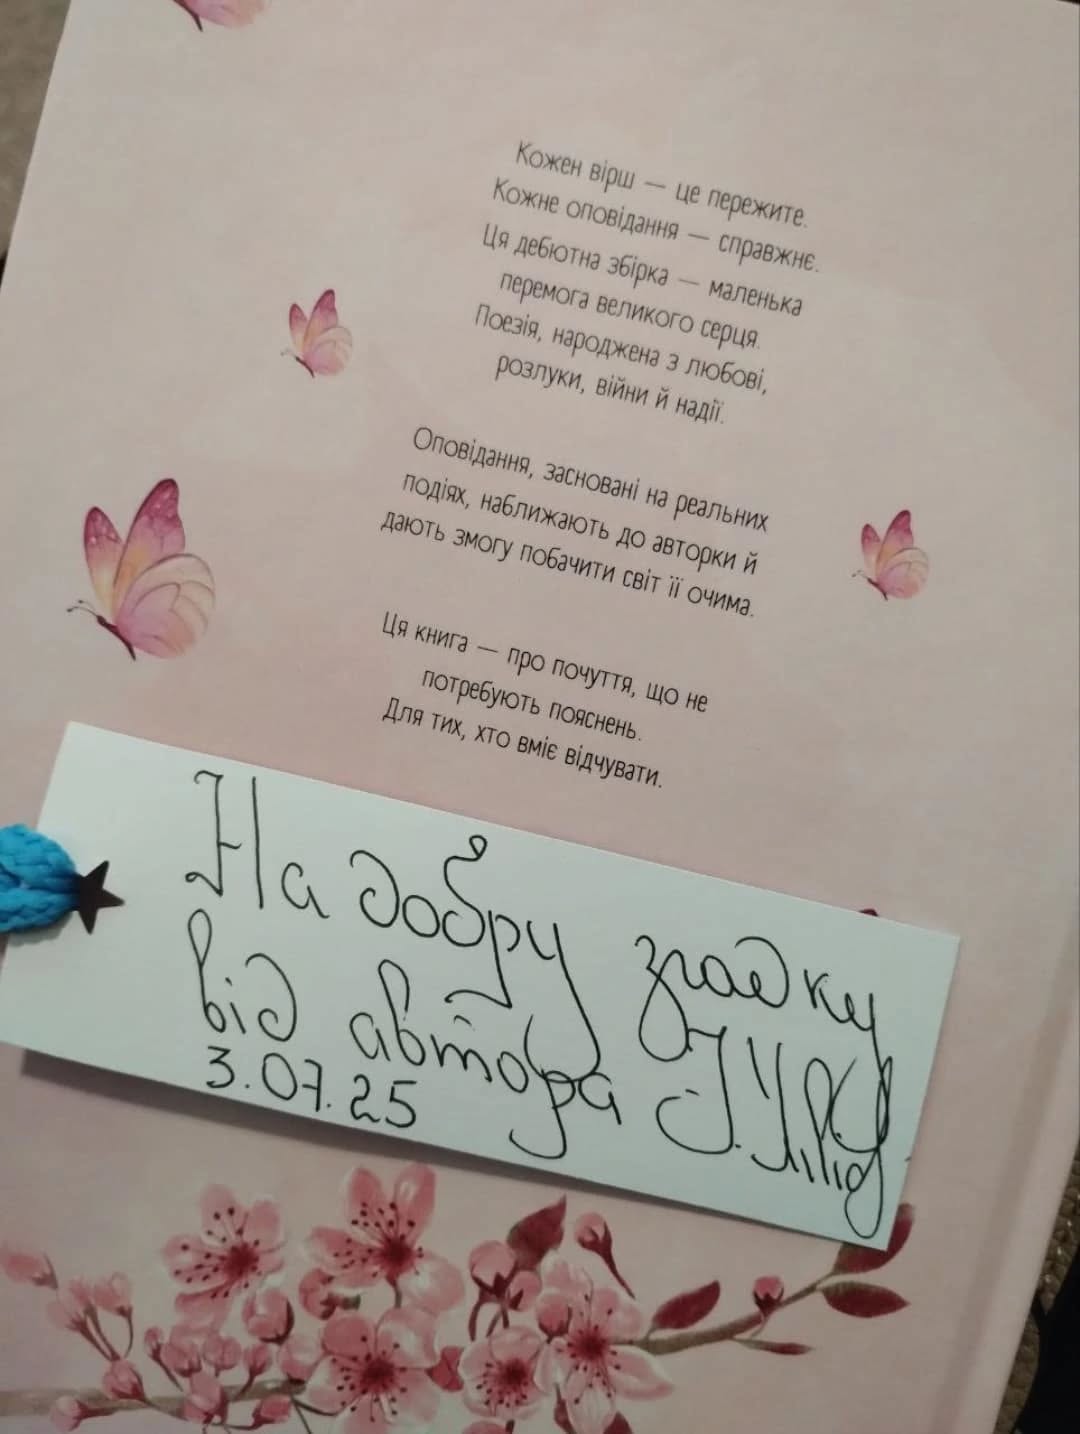 Кожен вірш — це пережите.
Кожне оповідання — справжнє.
Ця дебютна збірка — маленька
перемога великого серця.
Поезія, народжена з любові,
розлуки, війни й надії.
Оповідання, засновані на реальних
подіях, наближають до авторки й
дають змогу побачити світ її очима.
Ця книга — про почуття, що не
потребують пояснень.
Для тих, хто вміє відчувати.
На добру згадку
від автора
3.07.25